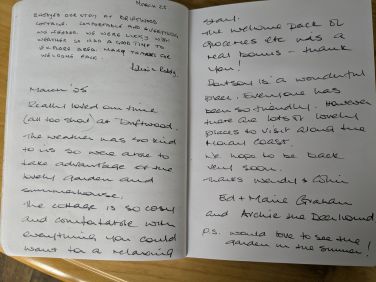 March 25
ENJOYED OUR STAY AT DRIFTWOOD
COTTAGE. COMFORTABLE AND EVERYTHING
WE NEEDED. WE WERE LUCKY WITH
WEATHER SO HAD A GOOD TIME TO
EXPLORE AREA. MANY THANKS FOR
WELCOME PACK.
March '25
Really loved our time
(all too short) at Driftwood.
The weather was so kind
to us so we were able to
take advantage of the
lovely garden and
summerhouse.
The cottage is so cosy
and comfortable with
everything you could
want for a relaxing
stay.
The welcome pack of
groceries etc was a
real bonus - thank
you!
Portsoy is a wonderful
place. Everyone has
been so friendly. However
there are lots of lovely
places to visit along the
Moray coast.
We hope to be back
very soon.
Thanks Wendy & Colin
Ed + Maire Graham
and Archie the Deerhound
p.s. would love to see the
garden in the summer!